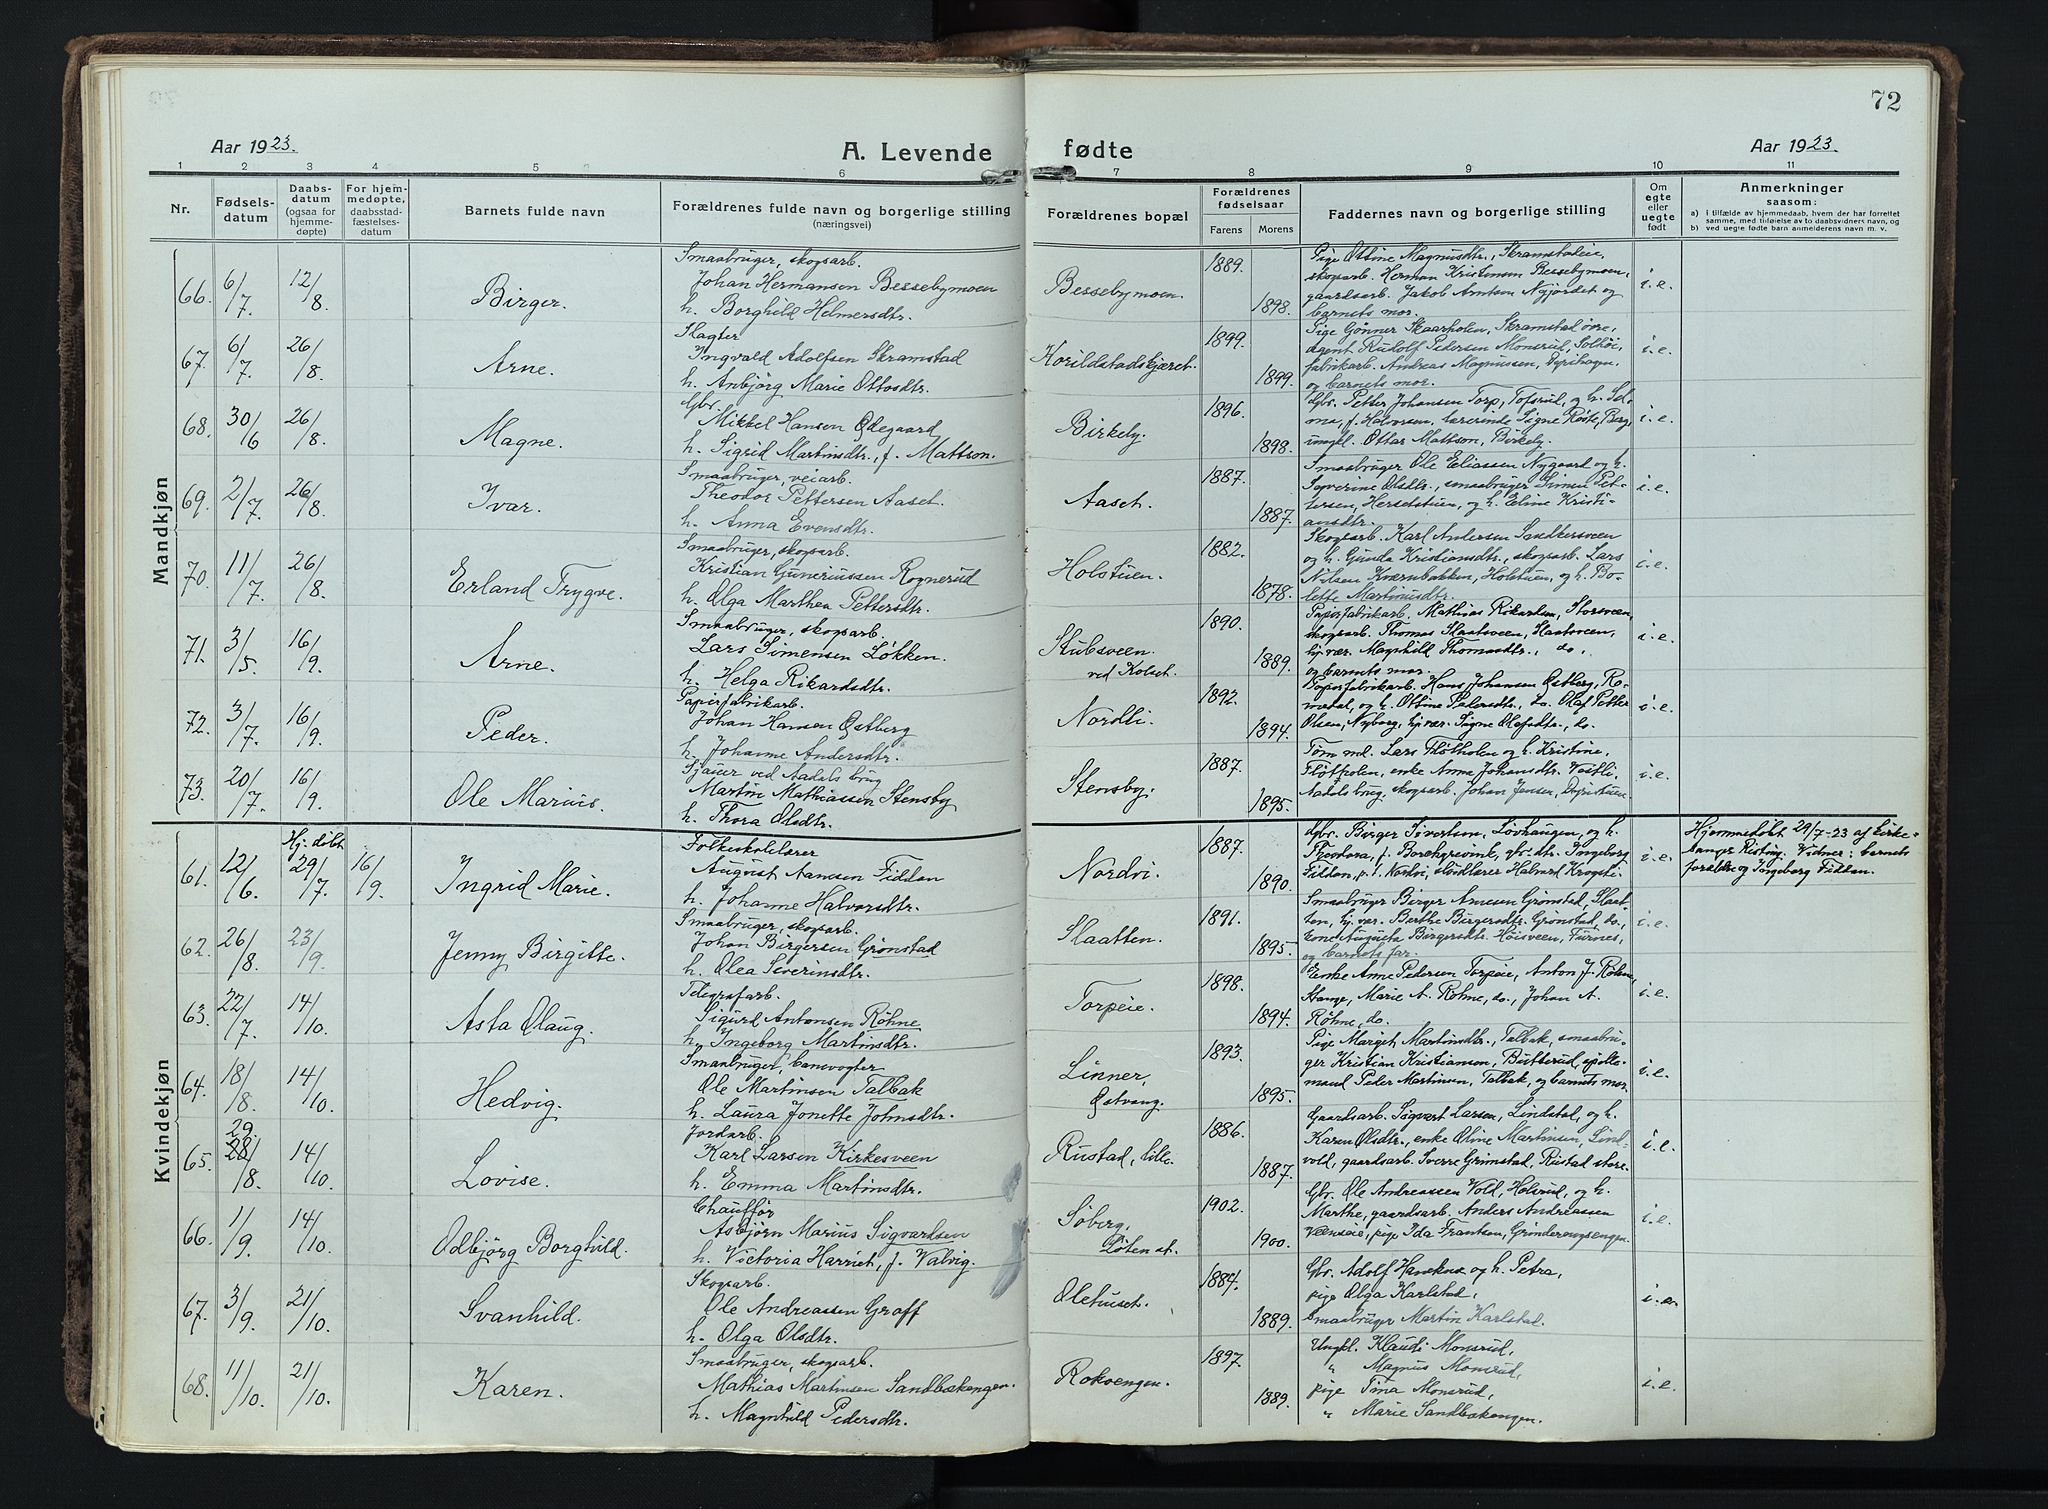 72
Aar 1923.
A. Levende fødte
Aar 1923.
1 2 3 4 5 6 7 8 9 10 11
Nr.
Fødselsdatum
Daabsdatum (ogsaa for hjemmedøpte)
For hjemmedøpte, daabsstadfæstelsesdatum
Barnets fulde navn
Forældrenes fulde navn og borgerlige stilling (næringsvei)
Forældrenes bopæl
Forældrenes fødselsaar
Farens Morens
Faddernes navn og borgerlige stilling
Om egte eller uegte født
Anmerkninger saasom:
a) i tilfælde av hjemmedaab, hvem der har forrettet samme, med tilføielse av to daabsvidners navn, og
b) ved uegte fødte barn anmelderens navn m. v.
Mandkjøn
66. 6/7 12/8 Birger.
Smaabruger, skogsarb.
Johan Hermansen Bessebymoen
h. Borghild Helmersdtr.
Bessebymoen. 1889. 1898.
Pige Ottine Magnusdtr., Skramstadeie,
skogsarb. Herman Kristensen Bessebymoen,
gaardsarb. Jakob Arntsen Nyjordet og
barnets mor.
i.e.
67. 6/7. 26/8. Arne.
Slagter
Ingvald Adolfsen Skramstad
h. Anbjørg Marie Ottosdtr.
Korildstadskjæret. 1899. 1899.
Pige Gönner Skaarholen, Skramstad øvre,
agent Rudolf Pedersen Monsrud, Solhöi,
fabrikarb. Andreas Magnussen, Dyrihagen,
og barnets mor.
i.e.
68. 30/6 26/8. Magne.
Gbr.
Mikkel Hansen Ødegaard
h. Sigrid Martinsdtr., f. Mattson.
Birkeby. 1896. 1898.
Gbr. Petter Johansen Torp, Tofsrud, og h. Selma,
f. Halvorsen, lærerinde Signe Røste, Berg,
ungkl. Ottar Mattson, Birkeby.
i.e.
69. 2/7. 26/8. Ivar.
Smaabruger, veiarb.
Theodor Pettersen Aaset.
h. Anna Evensdtr.
Aaset. 1887. 1887.
Smaabruger Ole Eliassen Nygaard og h.
Severine Olsdtr., smaabruger Simen Pettersen,
Hersetstuen, og h. Eline Kristiansdtr.
i.e.
70. 11/7. 26/8. Erland Trygve.
Smaabruger, skogsarb.
Kristian Gunerius­sen Rognerud
h. Olga Marthea Pettersdtr.
Holstuen. 1882. 1878.
Skogsarb. Karl Andersen Sandkersveen
og h. Gunda Kristiansdtr., skogsarb. Lars
Nilsen Kværnbakken, Holstuen, og h. Bolette
Martinusdtr.
i.e.
71. 3/5 16/9. Arne.
Smaabruger, skogsarb.
Lars Simensen Løkken.
h. Helga Rikardsdtr.
Stubsveen ved Kolset. 1890. 1889.
Papirfabrikarb. Mathias Rikardsen, Storsveen,
skogsarb. Thomas Slaatsveen, Slaatsveen,
hj.vær. Magnhild Thomasdtr., do,
og barnets mor.
i.e.
72. 3/7. 16/9. Peder.
Papirfabrikarb.
Johan Hansen Østberg
h. Johanne Andersdtr.
Nordli. 1892. 1894.
Papirfabrikarb. Hans Johansen Østberg, Romedal,
og h. Ottine Pedersdtr., do. Olaf Petter
Olsen, Nyborg, hj.vær. Signe Olafsdtr., do.
i.e.
73. 20/7. 16/9. Ole Marius.
Sjauer ved Aadals brug
Martin Mathiassen Stensby
h. Thora Olsdtr.
Stensby. 1887. 1895.
Tømmd. Lars Fløtholen og h. Kristine,
Fløtholen, enke Anna Johansdtr. Vestli,
Aadals brug, skogsarb. Johan Jensen, Dyristuen.
i.e.
Kvindekjøn
61. 12/6. Hj. døbt 29/7. 16/9. Ingrid Marie.
Folkeskolelærer
August Aamsen Fiddan
h. Johanne Halvorsdtr.
Nordvi. 1887. 1890.
Gbr. Birger Sivertsen, Løvhaugen, og h.
Theodora, f. Borchgrevink, gbr.dtr. Ingeborg
Fiddan, p.t. Nordvi, sløidlærer Halvard Krogsti.
i.e.
Hjemmedøbt 29/7-23 af kirkesanger
Risting. Vidner: barnets
forældre og Ingeborg Fiddan.
62. 26/8. 23/9. Jenny Birgitte.
Smaabruger, skogsarb.
Johan Birgersen Grønstad
h. Olea Severinsdtr.
Slaatten. 1891. 1895.
Smaabruger Birger Amesen Grønstad, Slaatten,
hj.vær. Berthe Birgersdtr. Grønstad, do,
Augusta Birgersdtr. Höisveen, Furnes,
og barnets far.
i.e.
63. 22/7. 14/10. Asta Olaug.
Telegrafarb.
Sigurd Antonsen Röhne
h. Ingeborg Martinsdtr.
Torpeie. 1898. 1894.
Enke Anne Pedersen Torpeie, Anton J. Röhne,
Stange, Marie A. Röhne, do., Johan A.
Röhne, do.
i.e.
64. 18/8. 14/10. Hedvig.
Smaabruger, banevogter
Ole Martinsen Talbak
h. Laura Jonette Johnsdtr.
Linner, Østvang. 1893. 1895.
Pige Margit Martinsdtr., Talbak, smaabruger
Kristian Kristiansen, Butterud, spillemand
Peder Martinsen, Talbak, og barnets mor.
i.e.
65. 29 28/8. 14/10. Lovise.
Jordarb.
Karl Larsen Kirkesveen
h. Emma Martinsdtr.
Rustad, lille. 1886. 1887.
Gaardsarb. Sigvart Larsen, Lindstad, og h.
Karen Olsdtr., enke Oline Martinsen, Lindvold,
gaardsarb. Sverre Grimstad, Rustad store.
i.e.
66. 11/9. 14/10. Odbjörg Borghild.
Chauffør
Asbjörn Marius Sigvardsen
h. Victoria Harriet, f. Valvig.
Søberg, Løten st. 1902. 1900.
Gbr. Ole Andreassen Vold, Holsrud, og h.
Marthe, gaardsarb. Anders Andreassen
Veenseie, pige Ida Frantsen, Grönderengsengen.
i.e.
67. 3/9. 21/10. Svanhild.
Skogsarb.
Ole Andreassen Graff
h. Olga Olsdtr.
Olehuset. 1884. 1889.
Gbr. Adolf Haveknæ og h. Petra,
pige Olga Karlstad,
Smaabruger Martin Karlstad.
i.e.
68. 11/10. 21/10. Karen.
Smaabruger, skogsarb.
Mathias Martinsen Sandbækengen.
h. Magnhild Pedersdtr.
Rokoengen. 1897. 1889.
Ungkl. Klaudi Monsrud,
" Magnus Monsrud,
pige Tina Monsrud,
" Marie Sandbækengen.
i.e.